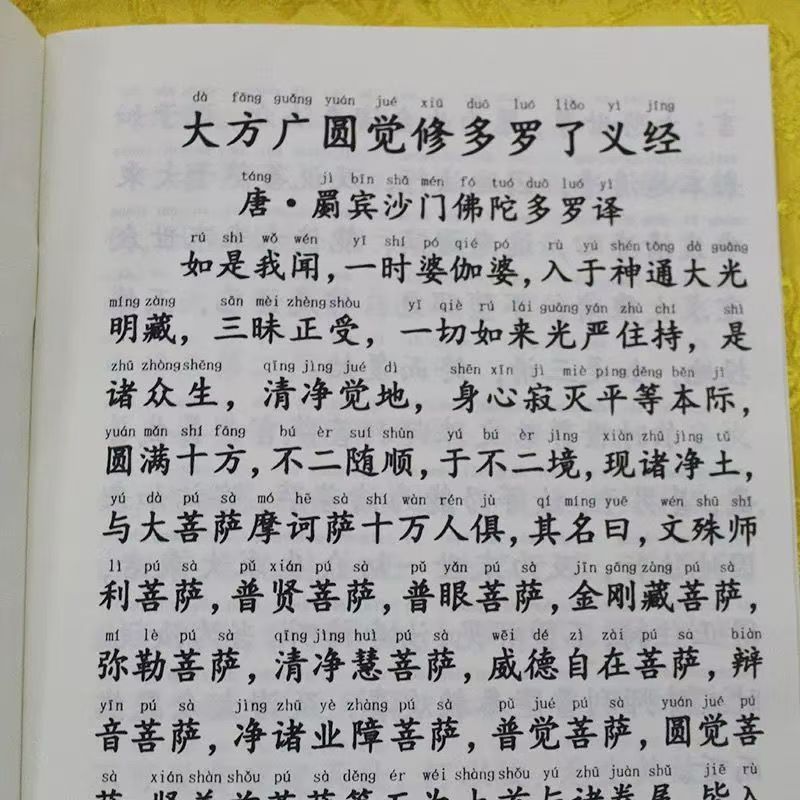 dà fāng guǎng yuán jué xiū duō luó liǎo yì jīng
大方广圆觉修多罗了义经
táng jì bīn shā mén fó tuó duō luó yì
唐·罽宾沙门佛陀多罗译
rú shì wǒ wén yī shí pó qié pó rù yú shén tōng dà guāng
如是我闻，一时婆伽婆，入于神通大光
míng zàng sān mèi zhèng shòu yī qiè rú lái guāng yán zhù chí shì
明藏，三昧正受，一切如来光严住持，是
zhū zhòng shēng qīng jìng jué dì shēn xīn jì miè píng děng běn jì
诸众生，清净觉地，身心寂灭平等本际，
yuán mǎn shí fāng bú èr suí shùn yú bú èr jìng xiàn zhū jìng tǔ
圆满十方，不二随顺，于不二境，现诸净土，
yú dà pú sà mó hē sà shí wàn rén jù qí míng yuē wén shū shī
与大菩萨摩诃萨十万人俱，其名曰，文殊师
lì pú sà pǔ xián pú sà pǔ yǎn pú sà jīn gāng zàng pú sà
利菩萨，普贤菩萨，普眼菩萨，金刚藏菩萨，
mí lè pú sà qīng jìng huì pú sà wēi dé zì zài pú sà biàn
弥勒菩萨，清净慧菩萨，威德自在菩萨，辩
yīn pú sà jìng zhū yè zhàng pú sà pǔ jué pú sà yuán jué pú
音菩萨，净诸业障菩萨，普觉菩萨，圆觉菩
sà xián shàn shǒu pú sà děng ér wéi shàng shǒu yǔ zhū juàn shǔ jiē rù
萨，贤善首菩萨等而为上首与诸眷属，皆入